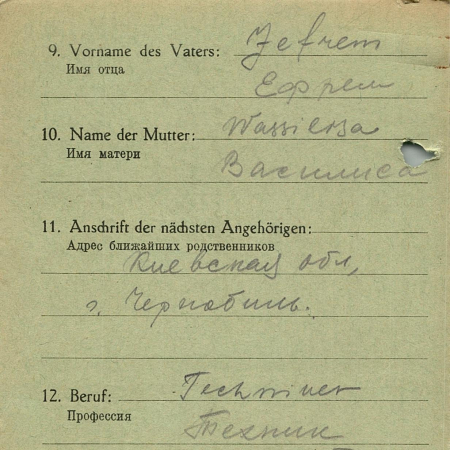 9. Vorname des Vaters: Jefrem
Имя отца
Ефрем
10. Name der Mutter: Wassilissa
Имя матери
Василиса
11. Anschrift der nächsten Angehörigen:
Адрес ближайших родственников
Киевская обл,
г. Чернобиль.
12. Beruf: Techniker
Профессия
Техник